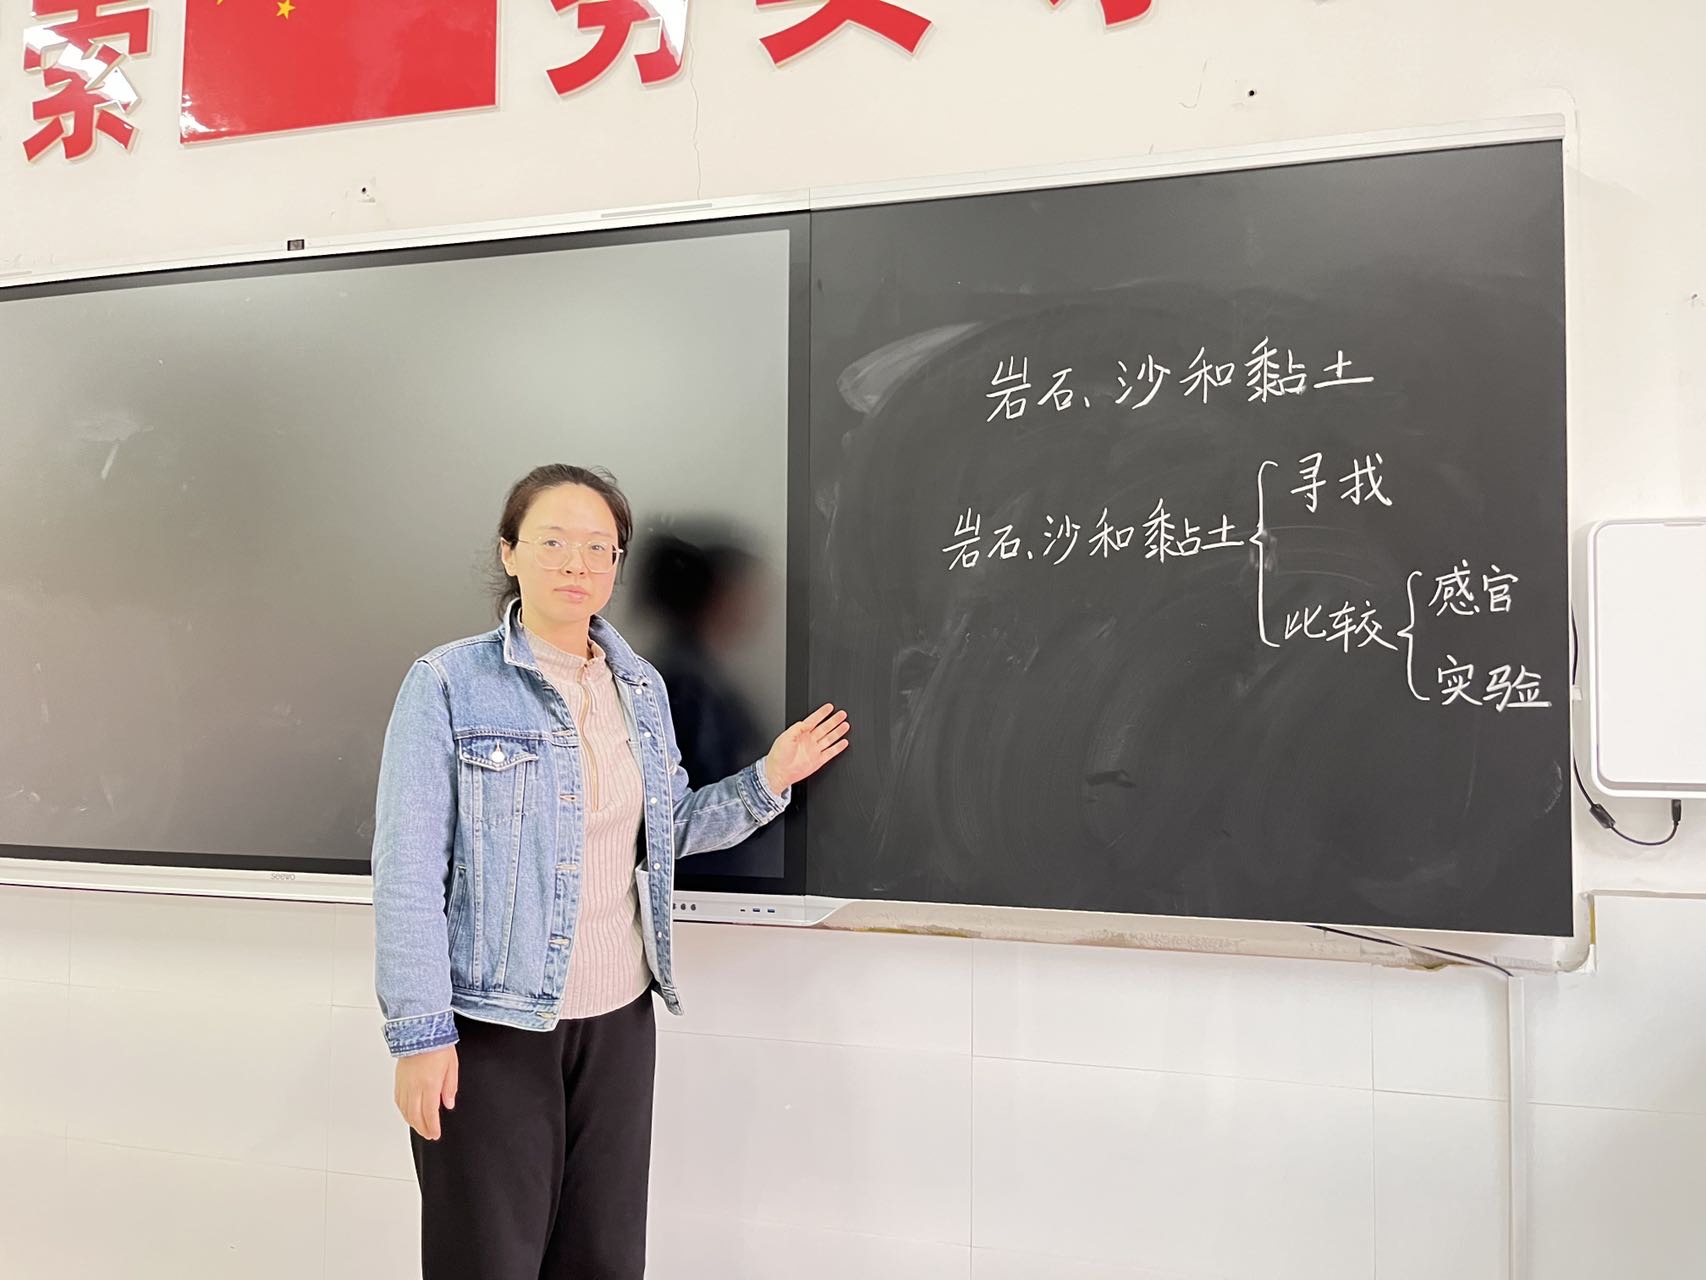 岩石、沙和黏土
岩石、沙和黏土
寻找
比较
感官
实验
seewo